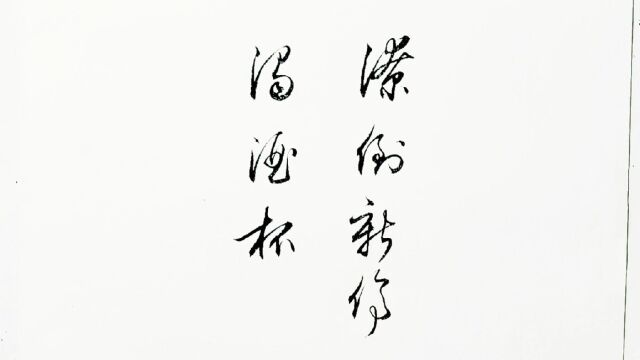 潦倒新停
浊酒杯